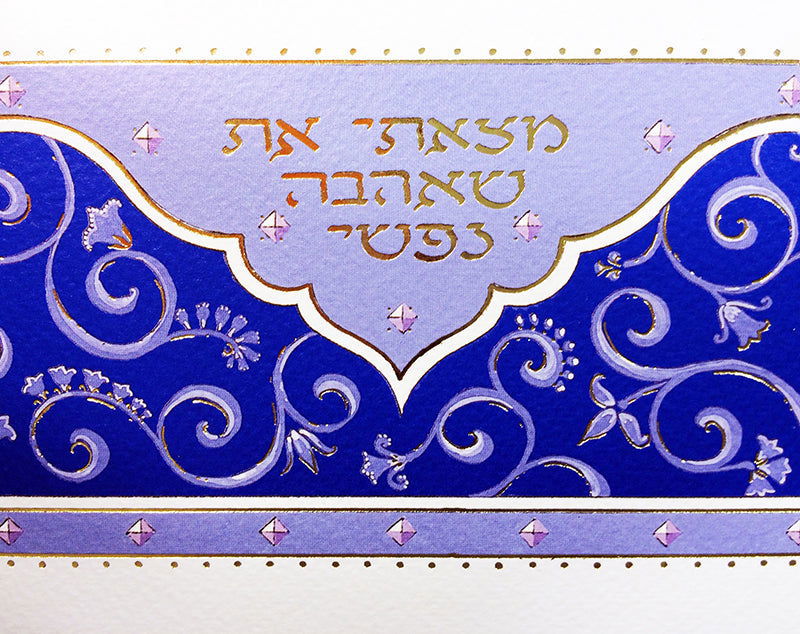 מצאתי את
שאהבה
נפשי